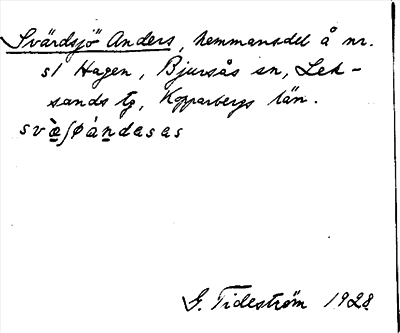 Svärdsjö Anders, hemmansdel å nr.
51 Hagen, Bjursås sn, Lek-
sands tg, Kopparbergs län.
svæ̀ʃøándasas
G. Tideström 1928